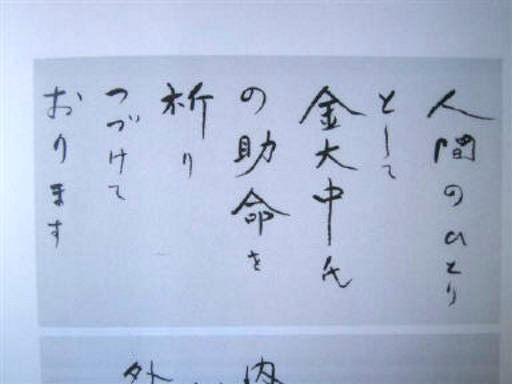 人間のひとり
として
金大中氏
の助命を
祈り
つづけて
おります
内
外